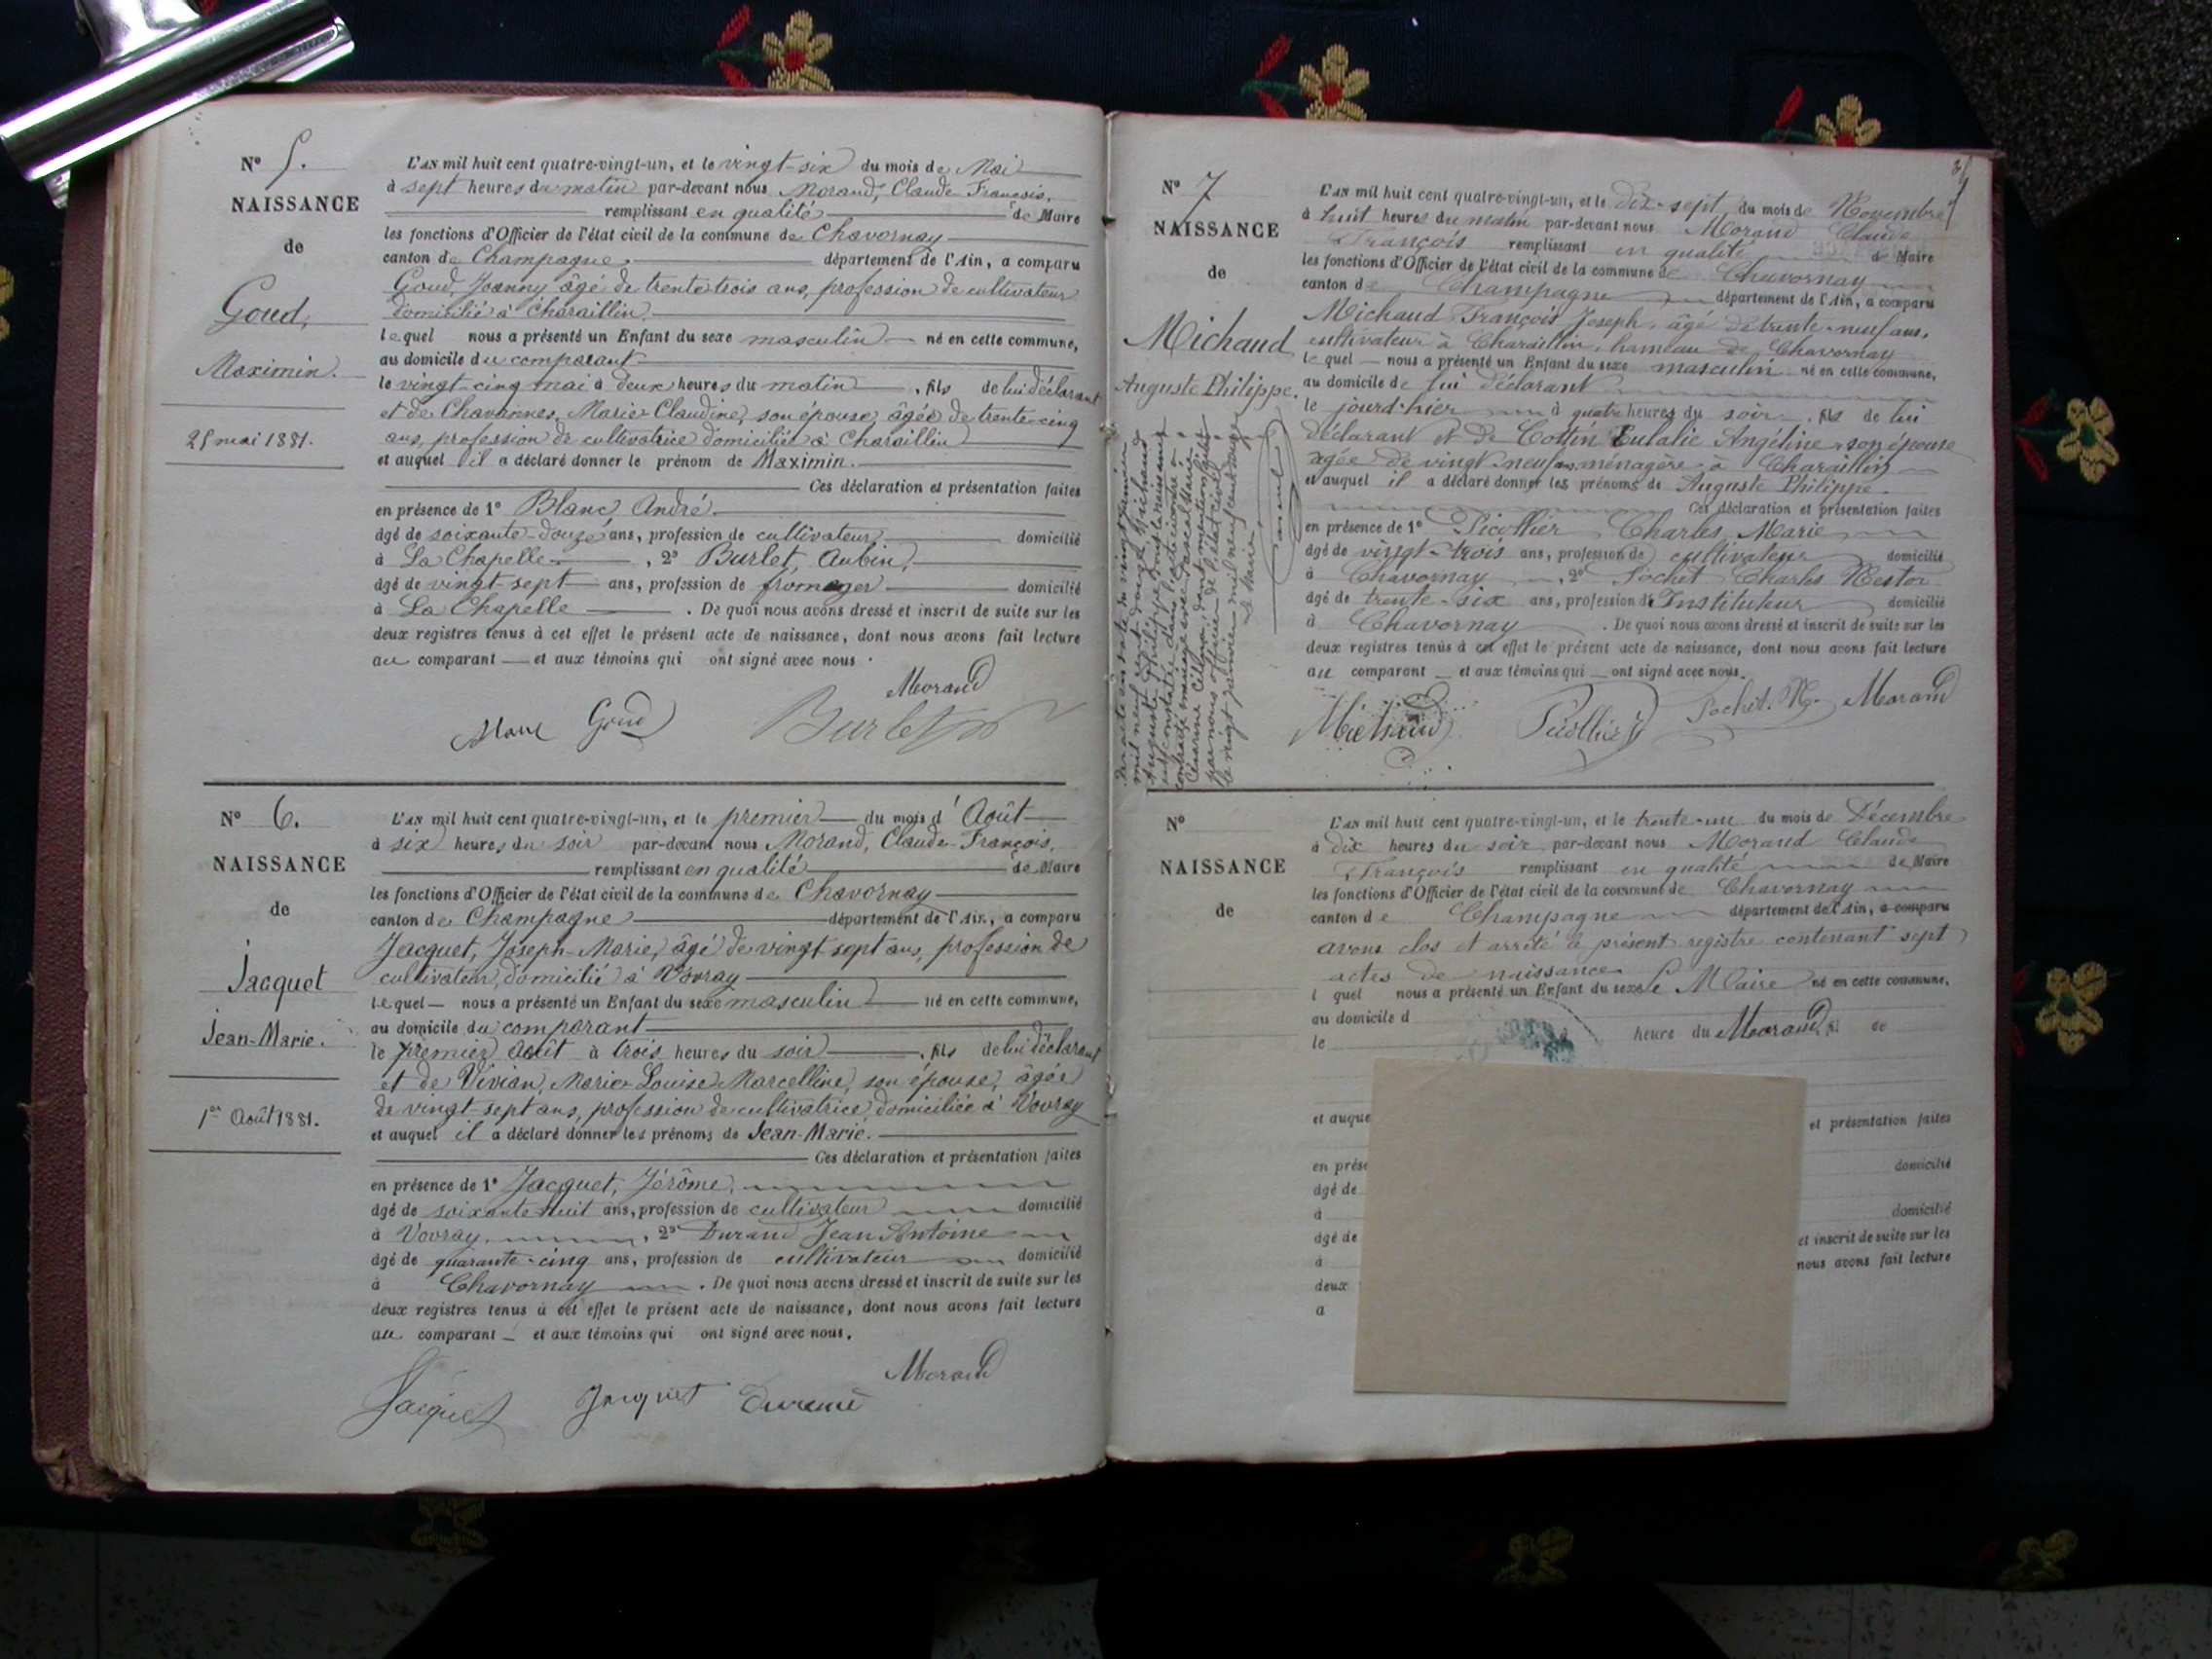 N° 5.
NAISSANCE
de
Goud,
Maximin.
25 mai 1881.
L'AN mil huit cent quatre-vingt-un, et le vingt-six du mois de Mai
à sept heures du matin par-devant nous Morand, Claude François,
remplissant en qualité de Maire
les fonctions d'Officier de l'état civil de la commune de Chavornay
canton de Champagne département de l'Ain, a comparu
Goud, Joanny âgé de trente trois ans, profession de cultivateur
domicilié à Charaillin
lequel nous a présenté un Enfant du sexe masculin né en cette commune,
au domicile du comparant
le vingt-cinq mai à deux heures du matin, fils de lui déclarant
et de Chavannes, Marie Claudine, son épouse, âgée de trente-cinq
ans, profession de cultivatrice domiciliée à Charaillin
et auquel il a déclaré donner le prénom de Maximin.
Ces déclaration et présentation faites
en présence de 1° Blanc André
âgé de soixante-douze ans, profession de cultivateur domicilié
à La Chapelle, 2° Burlet, Aubin,
âgé de vingt-sept ans, profession de fromager domicilié
à La Chapelle. De quoi nous avons dressé et inscrit de suite sur les
deux registres tenus à cet effet le présent acte de naissance, dont nous avons fait lecture
au comparant et aux témoins qui ont signé avec nous.
Morand
Goud Burlet
N° 6.
NAISSANCE
de
Jacquet
Jean-Marie.
1er Août 1881.
L'AN mil huit cent quatre-vingt-un, et le premier du mois d'Août
à six heures du soir par-devant nous Morand, Claude François,
remplissant en qualité de Maire
les fonctions d'Officier de l'état civil de la commune de Chavornay
canton de Champagne département de l'Ain, a comparu
Jacquet, Joseph-Marie, âgé de vingt sept ans, profession de
cultivateur, domicilié à Vovray
lequel nous a présenté un Enfant du sexe masculin né en cette commune,
au domicile du comparant
le premier Août à trois heures du soir, fils de lui déclarant
et de Vivian, Marie Louise Marcelline, son épouse, âgée
de vingt-sept ans, profession de cultivatrice, domiciliée à Vovray
et auquel il a déclaré donner les prénoms de Jean-Marie.
Ces déclaration et présentation faites
en présence de 1° Jacquet, Jérôme,
âgé de soixante huit ans, profession de cultivateur domicilié
à Vovray, 2° Durand Jean Antoine
âgé de quarante-cinq ans, profession de cultivateur domicilié
à Chavornay. De quoi nous avons dressé et inscrit de suite sur les
deux registres tenus à cet effet le présent acte de naissance, dont nous avons fait lecture
au comparant et aux témoins qui ont signé avec nous.
Morand
Jacquet Jacquet Durand
N° 7
NAISSANCE
de
Michaud
Auguste Philippe.
L'AN mil huit cent quatre-vingt-un, et le Dix-sept du mois de Novembre
à huit heures du matin par-devant nous Morand Claude
François remplissant en qualité de Maire
les fonctions d'Officier de l'état civil de la commune de Chavornay
canton de Champagne département de l'Ain, a comparu
Michaud François Joseph, âgé de trente-neuf ans,
cultivateur à Charaillin, hameau de Chavornay
lequel nous a présenté un Enfant du sexe masculin né en cette commune,
au domicile de lui déclarant
le jourd-hier à quatre heures du soir, fils de lui
déclarant et de Cottin Eulalie Angéline son épouse
agée de vingt-neuf ans ménagère à Charaillin
et auquel il a déclaré donner les prénoms de Auguste Philippe.
Ces déclaration et présentation faites
en présence de 1° Picollier Charles Marie
âgé de vingt-trois ans, profession de cultivateur domicilié
à Chavornay, 2° Pochet Charles Nestor
âgé de trente-six ans, profession d'Instituteur domicilié
à Chavornay. De quoi nous avons dressé et inscrit de suite sur les
deux registres tenus à cet effet le présent acte de naissance, dont nous avons fait lecture
au comparant et aux témoins qui ont signé avec nous.
Michaud Picollier Pochet. N. Morand
N°
NAISSANCE
de
L'AN mil huit cent quatre-vingt-un, et le trente-un du mois de Décembre
à dix heures du soir par-devant nous Morand Claude
François remplissant en qualité de Maire
les fonctions d'Officier de l'état civil de la commune de Chavornay
canton de Champagne département de l'Ain, a comparu
avons clos et arrêté le présent registre contenant sept
actes de naissance
l quel nous a présenté un Enfant du sexe Le Maire né en cette commune,
au domicile d
le heure du Morand, fil de
et auque
et présentation faites
en prése
domicilié
âgé de
à
domicilié
âgé de
et inscrit de suite sur les
à
nous avons fait lecture
deux
a